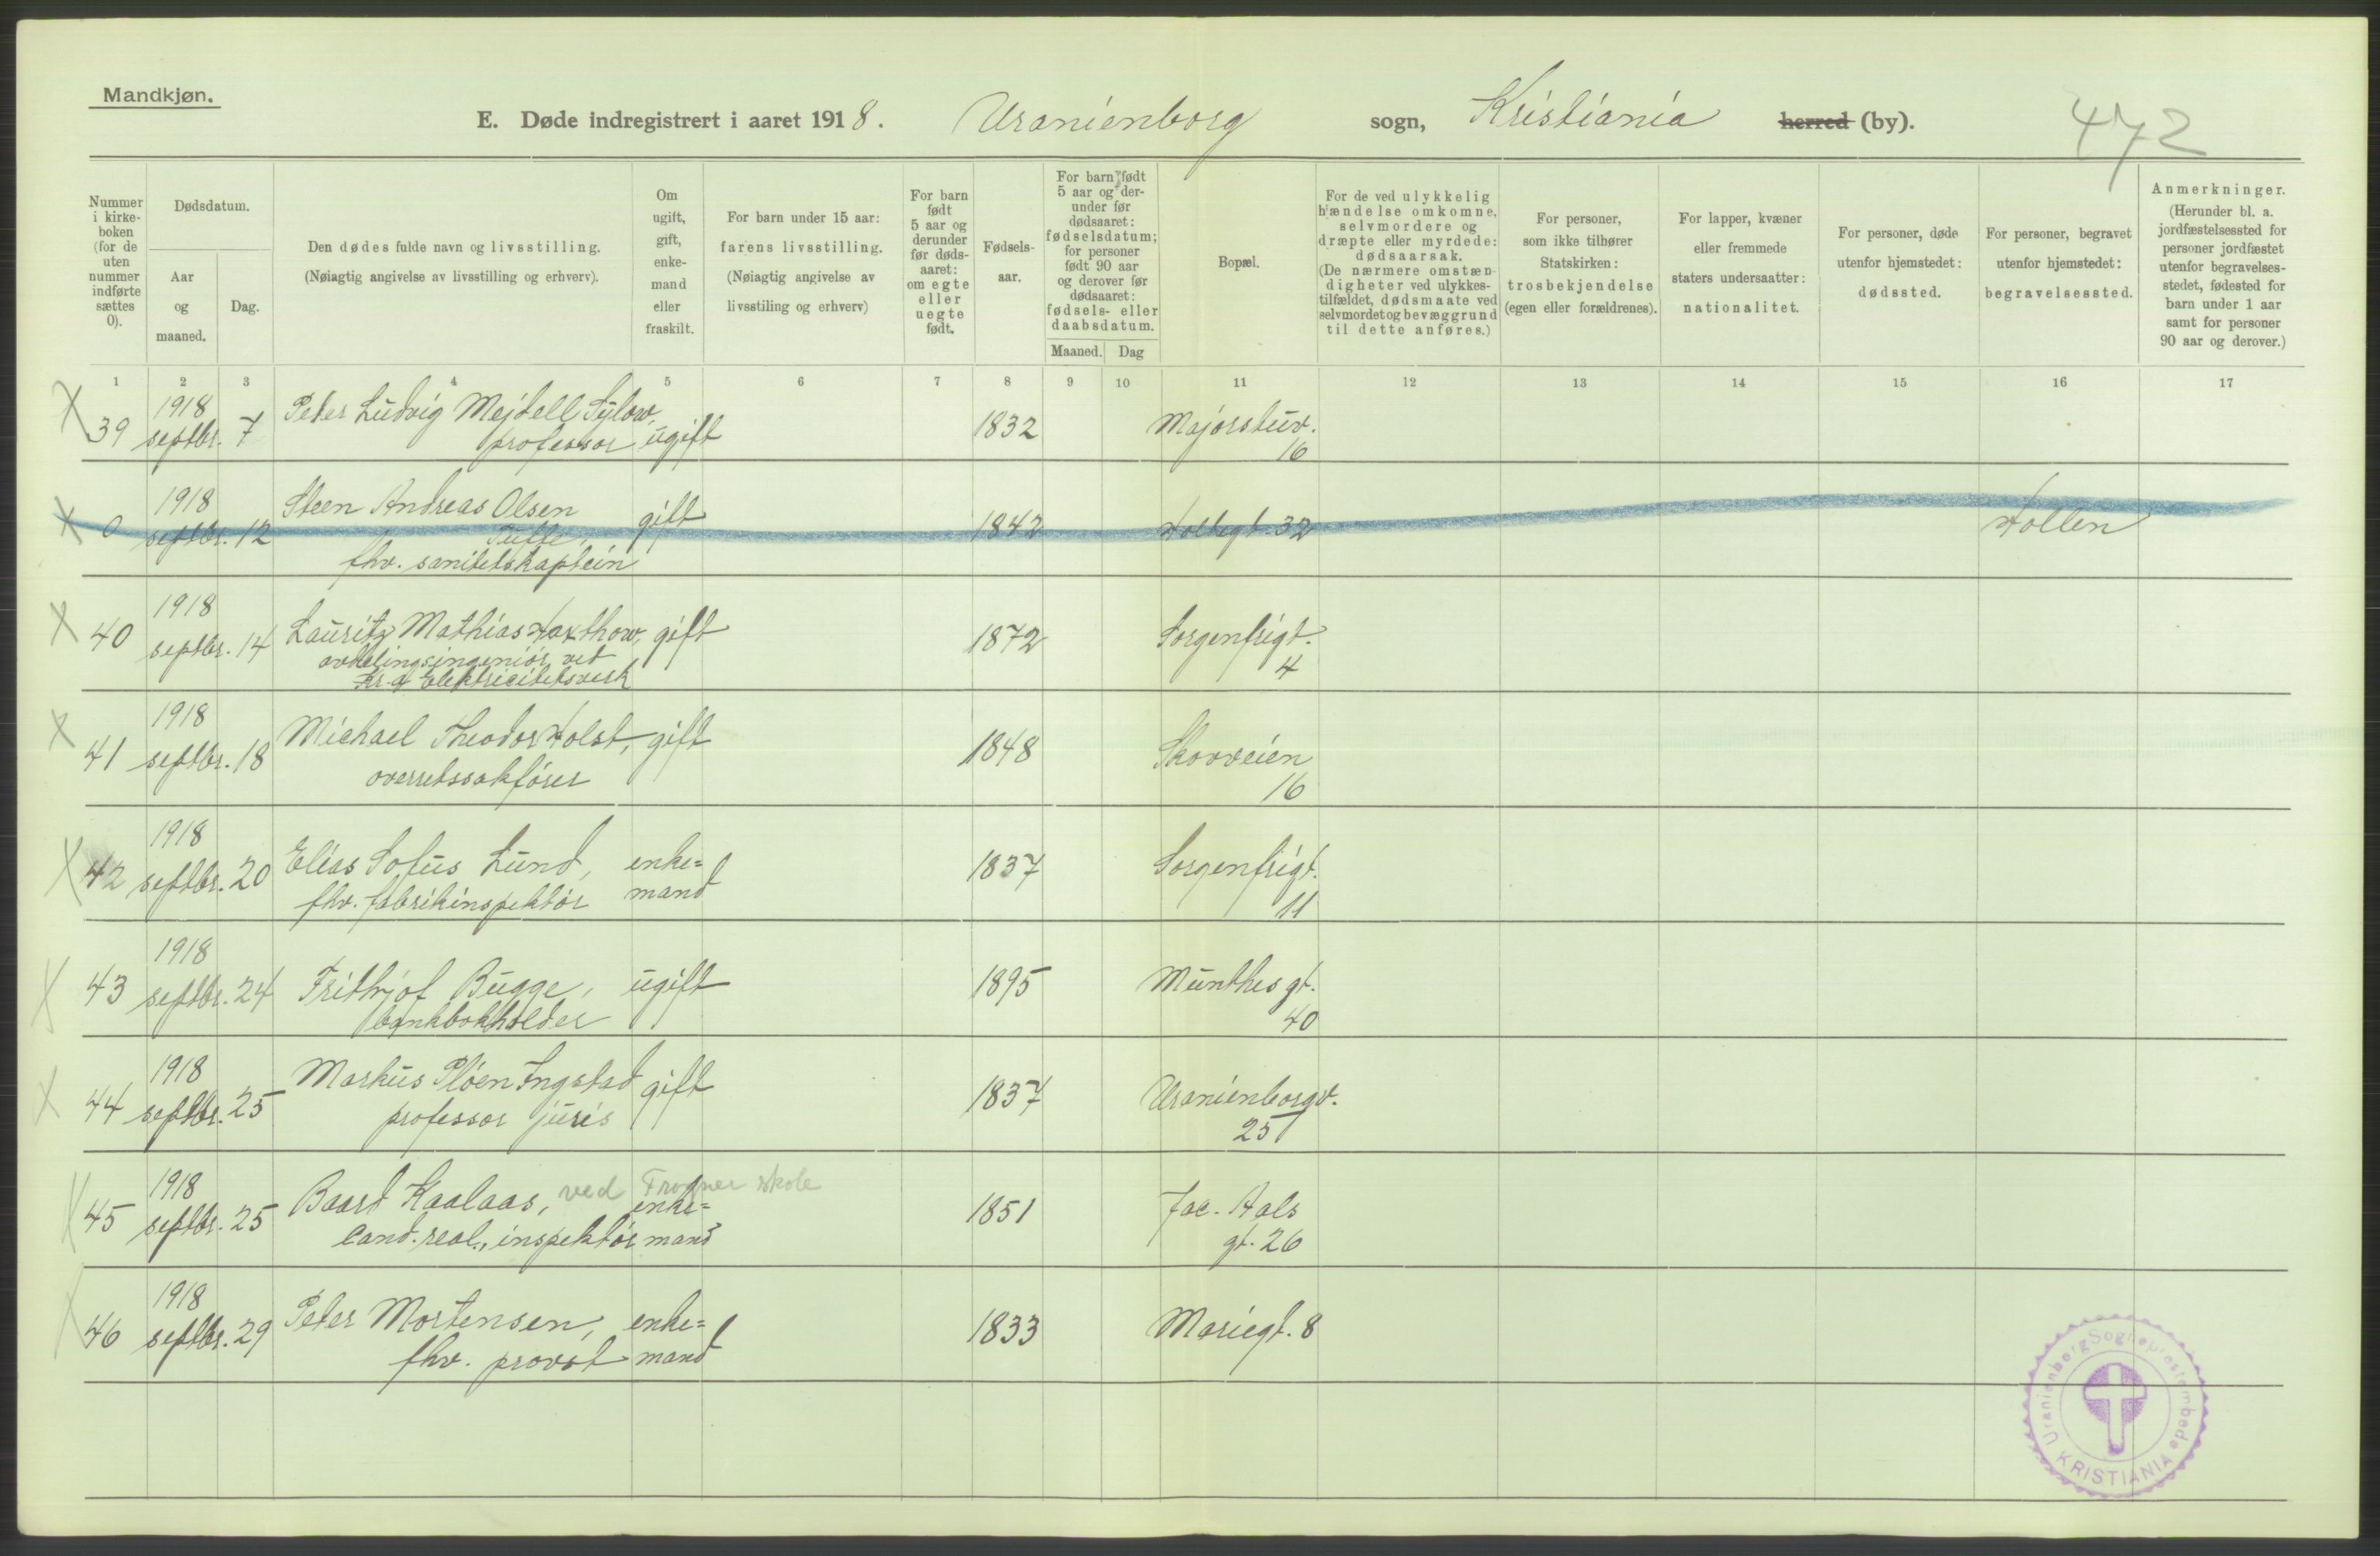 Mandkjøn.
E. Døde indregistrert i aaret 1918. Uranienborg sogn, Kristiania herred (by).
472
Nummer i kirke-boken (for de uten nummer indførte sættes 0).
Dødsdatum.
Aar og maaned.
Dag.
Den dødes fulde navn og livsstilling.
(Nøiagtig angivelse av livsstilling og erhverv).
Om ugift, gift, enke-mand eller fraskilt.
For barn under 15 aar:
farens livsstilling.
(Nøiagtig angivelse av
livsstiling og erhverv)
For barn født 5 aar og derunder før døds-aaret: om egte eller uegte født.
Fødsels-aar.
For barn født 5 aar og der-under før dødsaaret: fødselsdatum; for personer født 90 aar og derover før dødsaaret: fødsels- eller daabsdatum.
Maaned. Dag
Bopæl.
For de ved ulykkelig hændelse omkomne, selvmordere og dræpte eller myrdede: dødsaarsak. (De nærmere omstæn-digheter ved ulykkes-tilfældet, dødsmaate ved selvmordet og bevæggrund til dette anføres.)
For personer, som ikke tilhører Statskirken: trosbekjendelse (egen eller forældrenes).
For lapper, kvæner eller fremmede staters undersaatter: nationalitet.
For personer, døde utenfor hjemstedet: dødssted.
For personer, begravet utenfor hjemstedet: begravelsessted.
Anmerkninger.
(Herunder bl. a. jordfæstelsessted for personer jordfæstet utenfor begravelses-stedet, fødested for barn under 1 aar samt for personer 90 aar og derover.)
1 2 3 4 5 6 7 8 9 10 11 12 13 14 15 16 17
X 39 1918 septbr. 7 Peter Ludvig Mejdell Sylow, professor ugift 1832 Majorstuv. 16
X 0 1918 septbr. 12 Steen Andreas Olsen
fhv. sanitetskaptein gift 1842 Holtegt. 32 Hollen
X 40 1918 septbr. 14 Lauritz Mathias Haxthow,
avdelingsingeniør ved
Kr.a Elektricitetsverk gift 1872 Sorgenfrigt. 4
X 41 1918 septbr. 18 Michael Theodor Holst,
overretssakfører gift 1848 Skovveien 16
X 42 1918 septbr. 20 Elias Sofus Lund,
fhv. fabrikinspektør enke=mand 1837 Sorgenfrigt. 11
X 43 1918 septbr. 24 Frithjof Bugge,
bankbokholder ugift 1895 Munthes gt. 40
X 44 1918 septbr. 25 Markus Pløen Ingstad
professor juris gift 1837 Uranienborgv. 25
X 45 1918 septbr. 25 Baard Kaalaas, ved Frogner skole
cand. real., inspektør enke=mand 1851 Jac. Aals gt. 26
X 46 1918 septbr. 29 Peter Mortensen,
fhv. provst enke=mand 1833 Mariegt. 8
Uranienborg Sogneprestembede
KRISTIANIA